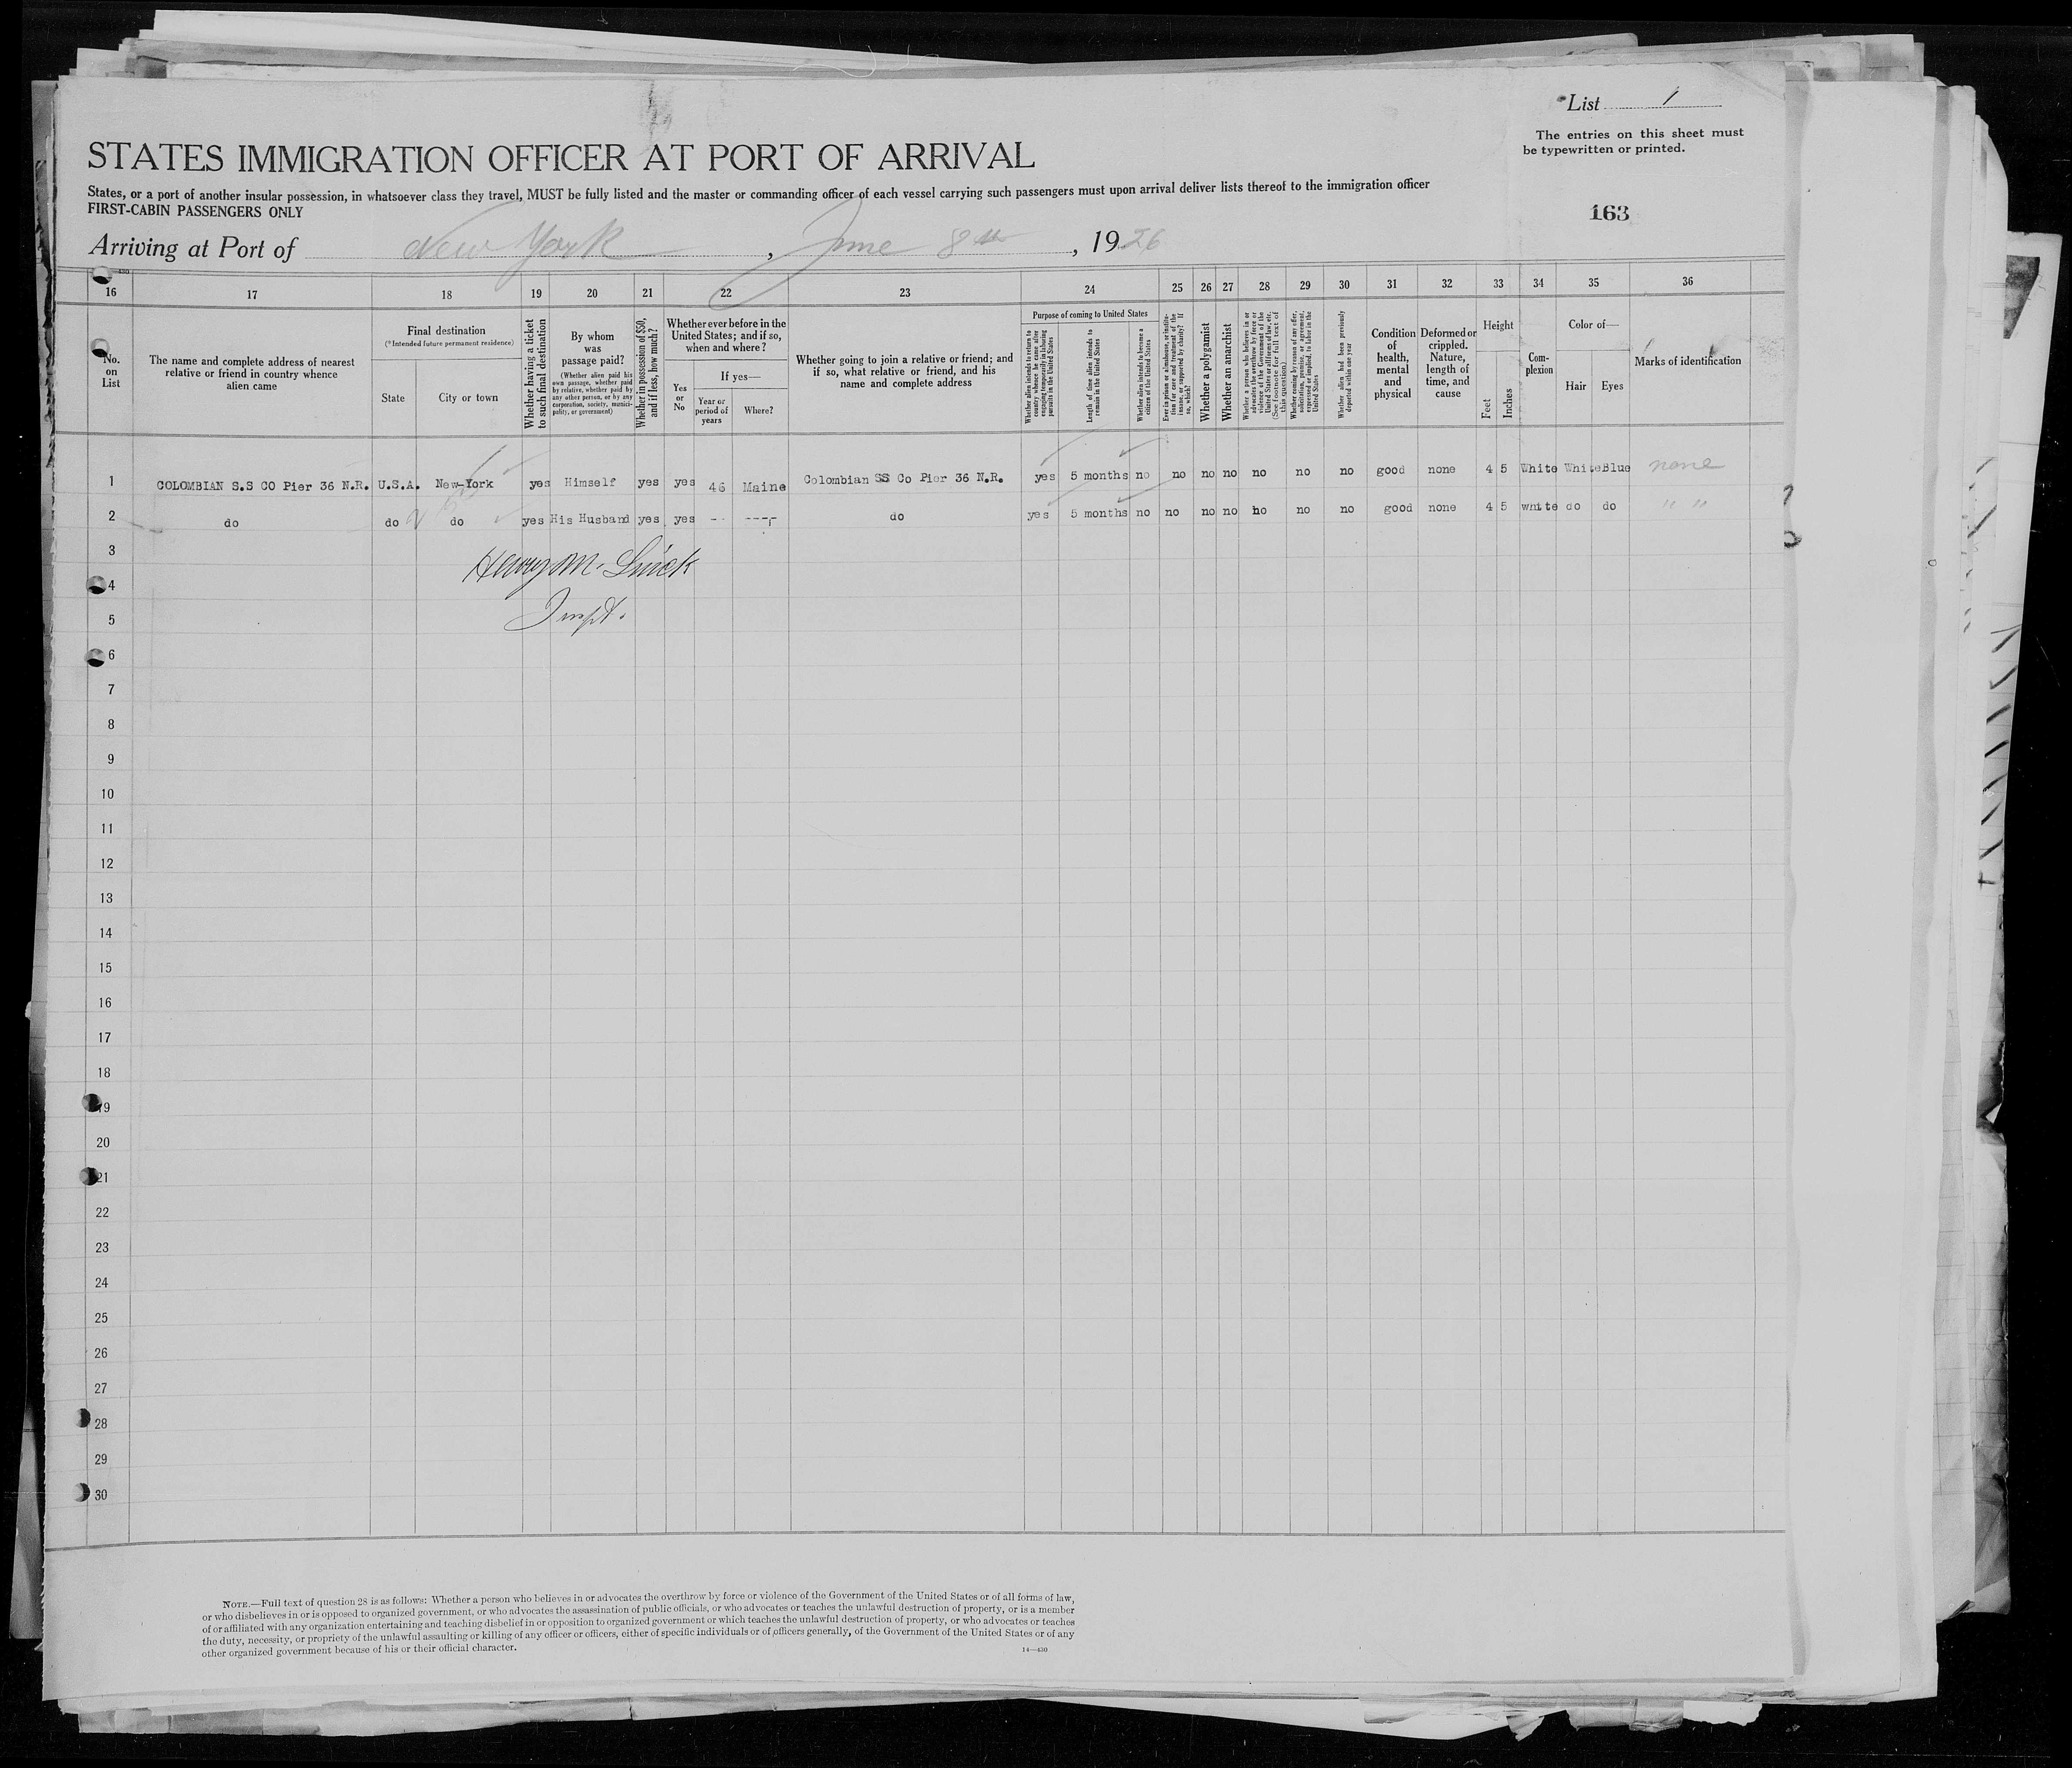 List 1
The entries on this sheet must
be typewritten or printed.
STATES IMMIGRATION OFFICER AT PORT OF ARRIVAL
States, or a port of another insular possession, in whatsoever class they travel, MUST be fully listed and the master or commanding officer of each vessel carrying such passengers must upon arrival deliver lists thereof to the immigration officer
FIRST-CABIN PASSENGERS ONLY
163
Arriving at Port of New York, June 8th, 1926
16 17 18 19 20 21 22 23 24 25 26 27 28 29 30 31 32 33 34 35 36
No.
on
List
The name and complete address of nearest
relative or friend in country whence
alien came
Final destination
(*Intended future permanent residence)
State
City or town
Whether having a ticket
to such final destination
By whom
was
passage paid?
(Whether alien paid his
own passage, whether paid
by relative, whether paid by
any other person, or by any
corporation, society, munici-
pality, or government)
Whether in possession of $50,
and if less, how much?
Whether ever before in the
United States; and if so,
when and where?
Yes
or
No
If yes—
Year or
period of
years
Where?
Whether going to join a relative or friend; and
if so, what relative or friend, and his
name and complete address
Purpose of coming to United States
Whether alien intends to return to
country whence he came after
engaging temporarily in laboring
pursuits in the United States
Length of time alien intends to
remain in the United States
Whether alien intends to become a
citizen of the United States
Ever in prison or almshouse, or institu-
tion for care and treatment of the
insane, or supported by charity? If
so, which?
Whether a polygamist
Whether an anarchist
Whether a person who believes in or
advocates the overthrow by force or
violence of the Government of the
United States or all forms of law, etc.
(See footnote for full text of
this question.)
Whether coming by reason of any offer,
solicitation, promise, or agreement,
expressed or implied, to labor in the
United States
Whether alien had been previously
deported within one year
Condition
of
health,
mental
and
physical
Deformed or
crippled.
Nature,
length of
time, and
cause
Height
Feet
Inches
Com-
plexion
Color of—
Hair
Eyes
Marks of identification
1 COLOMBIAN S.S CO Pier 36 N.R. U.S.A. New-York yes Himself yes yes 46 Maine Colombian SS Co Pier 36 N.R. yes 5 months no no no no no no no good none 4 5 White White Blue none
2 do do do yes His Husband yes yes -- ---- do yes 5 months no no no no no no no good none 4 5 white do do " "
3
Henry M.
4
Inspt.
5
6
7
8
9
10
11
12
13
14
15
16
17
18
19
20
21
22
23
24
25
26
27
28
29
30
NOTE.—Full text of question 28 is as follows: Whether a person who believes in or advocates the overthrow by force or violence of the Government of the United States or of all forms of law,
or who disbelieves in or is opposed to organized government, or who advocates the assassination of public officials, or who advocates or teaches the unlawful destruction of property, or is a member
of or affiliated with any organization entertaining and teaching disbelief in or opposition to organized government or which teaches the unlawful destruction of property, or who advocates or teaches
the duty, necessity, or propriety of the unlawful assaulting or killing of any officer or officers, either of specific individuals or of officers generally, of the Government of the United States or of any
other organized government because of his or their official character.
14—430